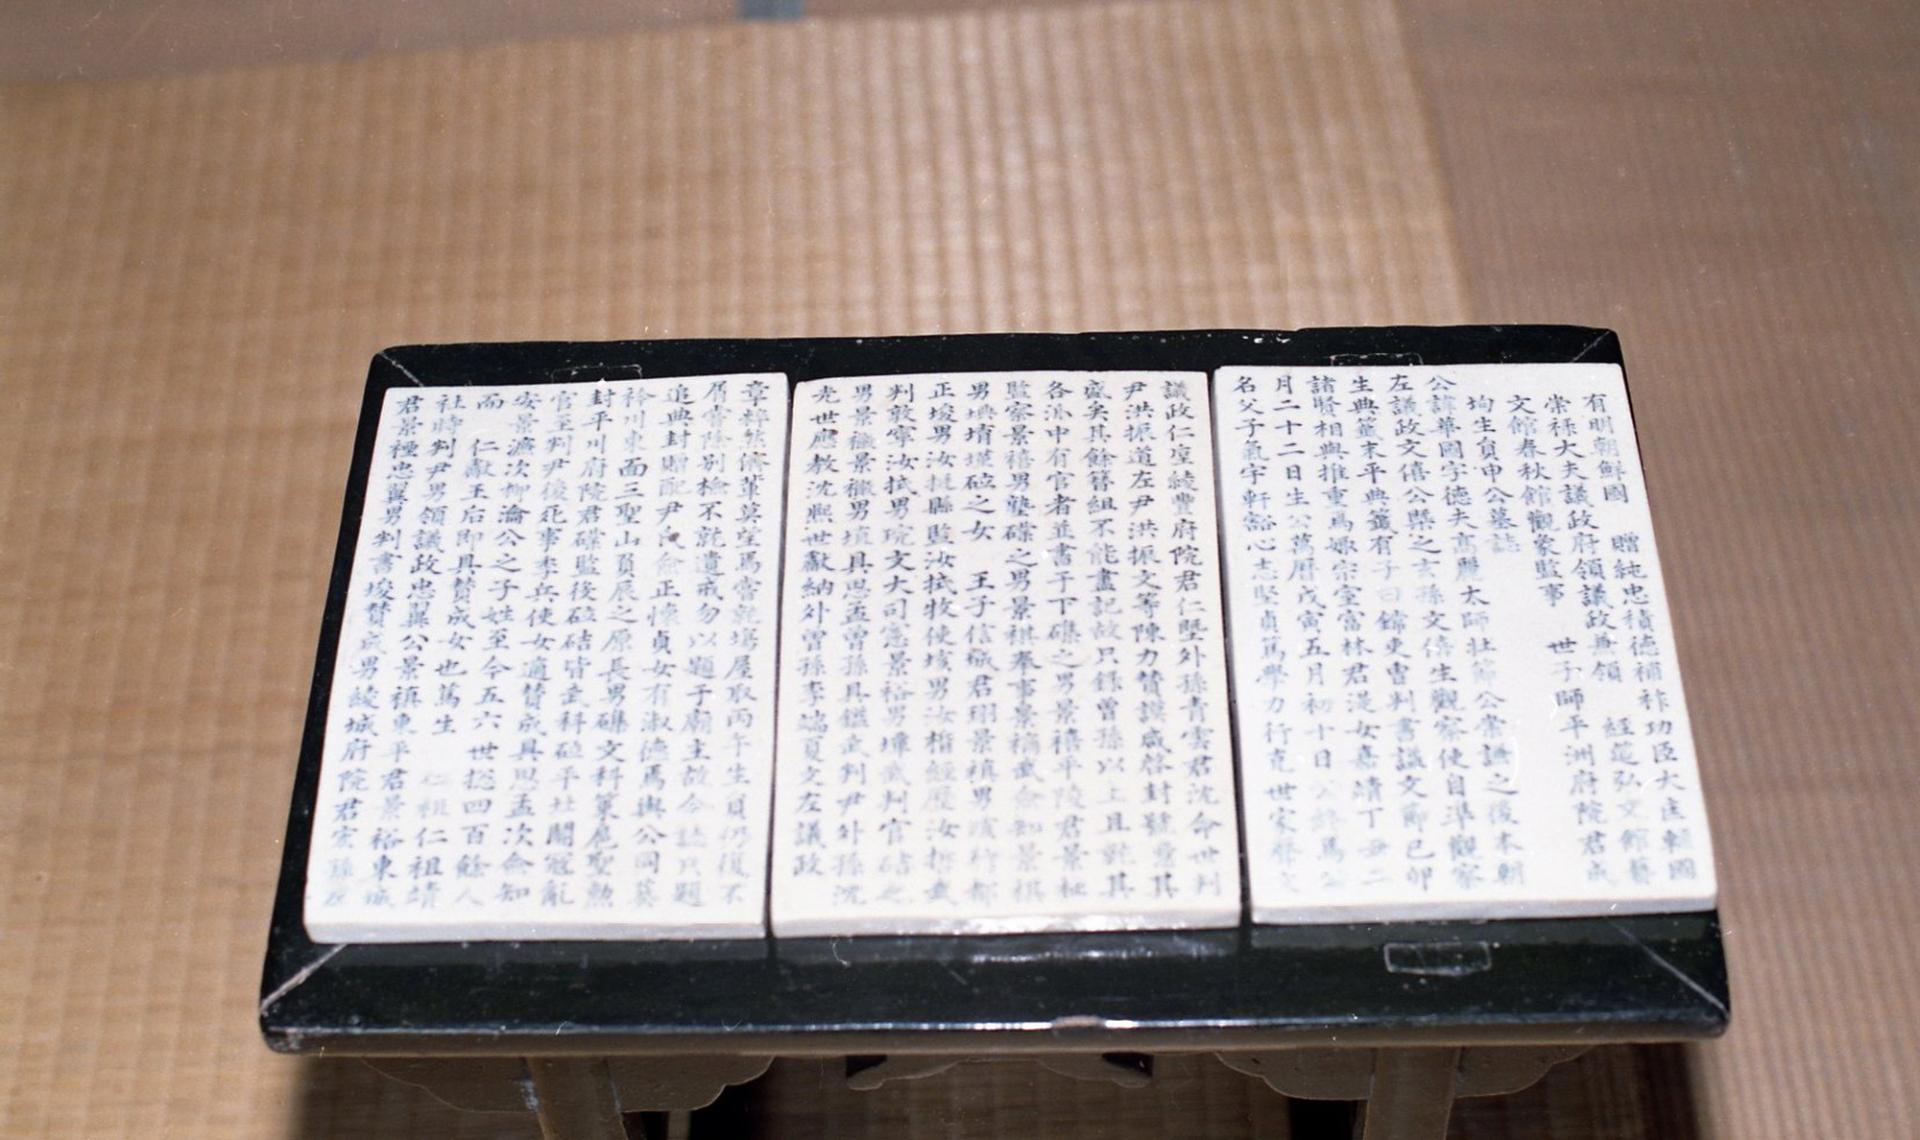 有明朝鮮國 贈純忠積德補祚功臣大匡輔國
崇祿大夫議政府領議政兼領 經筵弘文館藝
文館春秋館觀象監事 世子師平洲府院君成
均生員申公墓誌
公諱華國字德夫高麗太師壯節公崇謙之後本朝
左議政文僖公㮣之玄孫文僖生觀察使自準觀察
生典籤末平典籤有子曰錦吏曹判書議文節己卯
諸賢相與推重焉娵宗室富林君湜女嘉靖丁丑二
月二十二日生公萬曆戊寅五月初十日公終焉公
名父子氣宇軒豁心志堅貞篤學力行克世家聲文
議政仁垕綾豐府院君仁墍外孫青雲君沈命世判
尹洪振道左尹洪振文等陳力贊謨咸啓封號豊其
盛矣其餘簪組不能盡記故只錄曾孫以上且毓其
各派中有官者並書于下磼之男景禧平陵君景祉
監察景禧男塾磼之男景祺奉事景禧武僉知景祺
男墺堉墐砬之女 王子信城君珝景禛男 都
正埈男汝挺縣監汝拭牧使垓男汝楷經歷汝哲武
判敦寧汝拭男琓文大司憲景裕男墇武判官硈之
男景徽景徽男塡具思孟曾孫具鎰武判尹外孫沈
光世應教沈熙世獻納外曾孫李端夏文左議政
章粹然儕輩莫望焉嘗就場屋取丙午生員仍復不
屑嘗除別檢不就遺戒勿以題于廟主故今 只題
追典封贈配尹氏僉正懷貞女有淑德焉與公同葬
衿川東面三聖山負辰之原長男磼文科策扈聖勳
封平川府院君磼監後砬硈皆武科砬平壯關冠亂
官至判尹後死事李兵使女適贊成具思孟次僉知
安景濂次柳瀹公之子姓至今五六世摠四百餘人
而 仁獻王后即具贊成女也篤生 仁祖仁祖靖
社時判尹男領議政忠翼公景禛東平君景裕東城
君景種忠翼男判書埈贊成男綾城府院君宏孫及